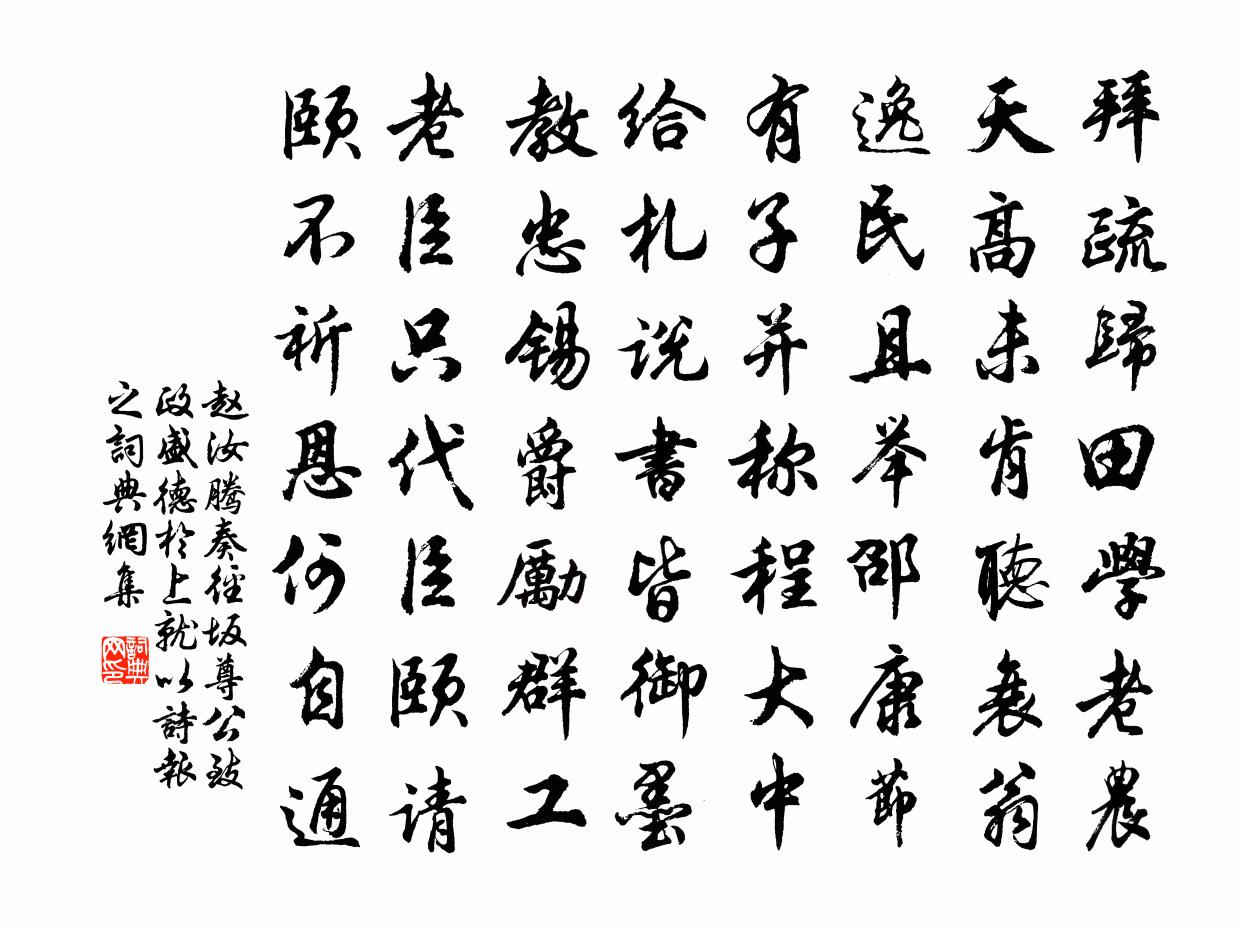 拜疏歸田學老農
天高未肯聽衰翁
逸民且举邵康節
有子并称程大中
给札说書皆御墨
教忠錫爵勵群工
老臣只代臣颐请
颐不祈恩何自通
赵汝騰奏徑坂尊公致
政盛德於上就以詩報
之詞典網集
詞典网印